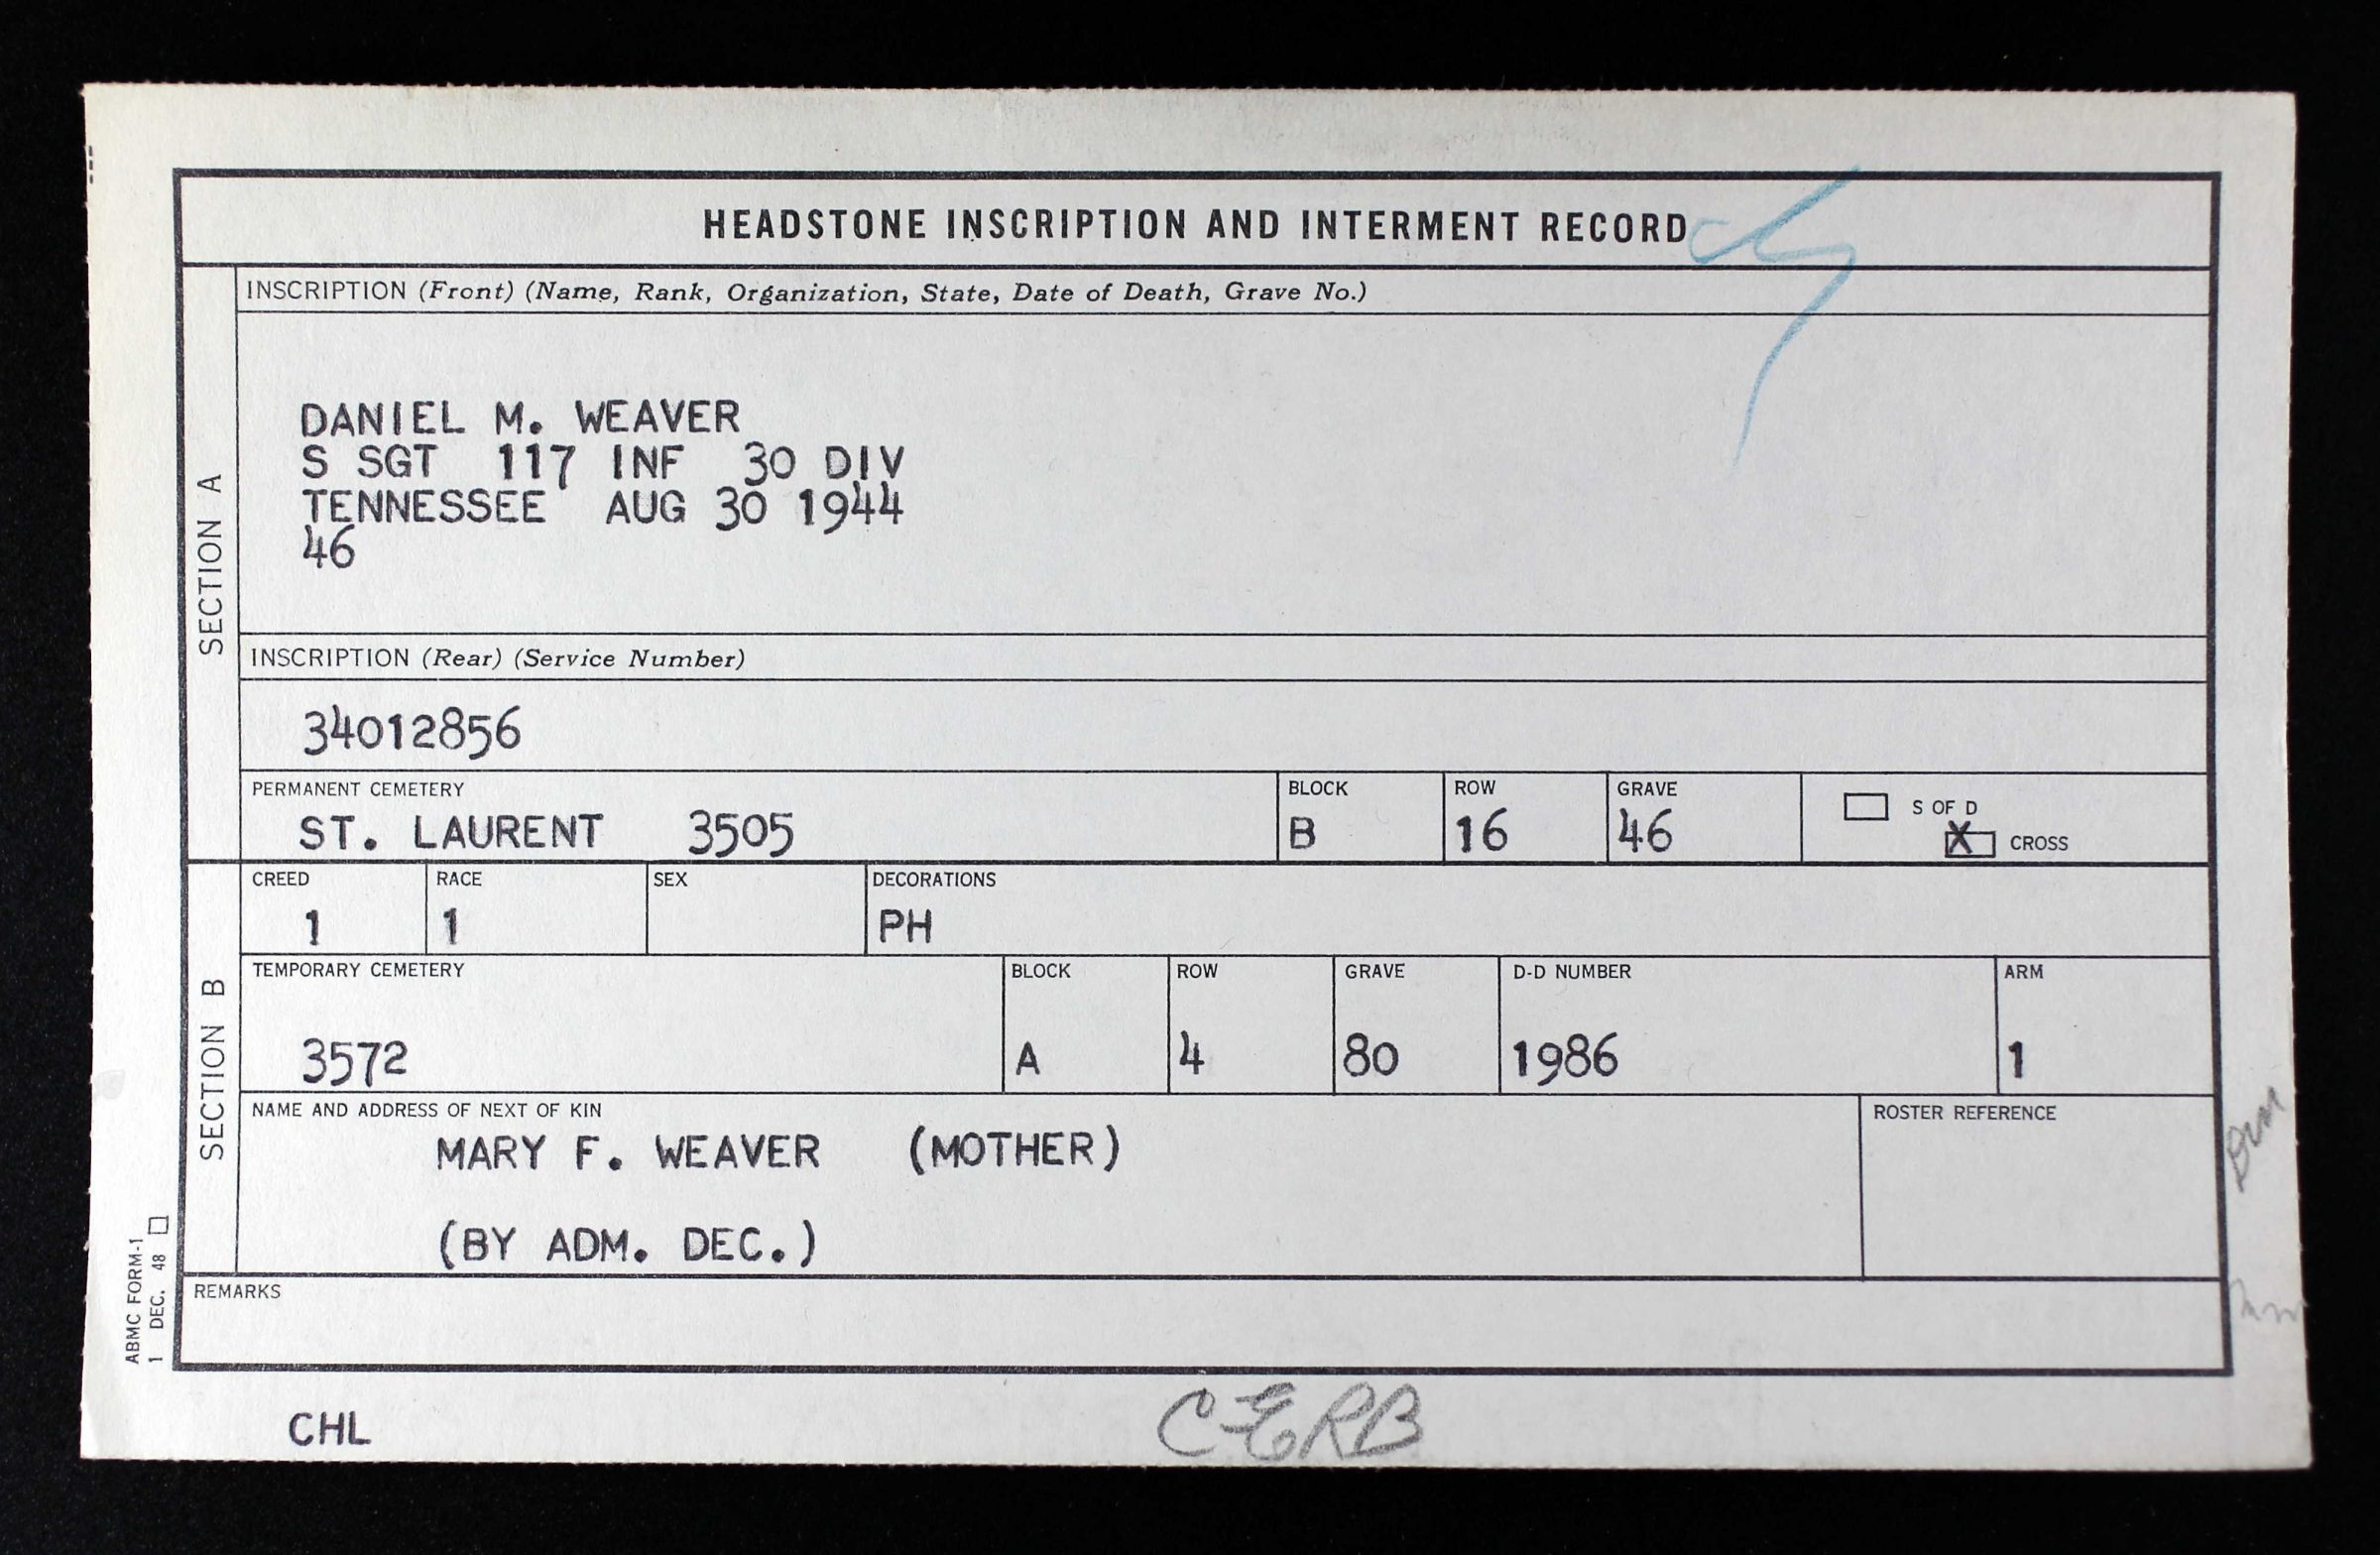 HEADSTONE INSCRIPTION AND INTERMENT RECORD
SECTION A
INSCRIPTION (Front) (Name, Rank, Organization, State, Date of Death, Grave No.)
DANIEL M. WEAVER
S SGT 117 INF 30 DIV
TENNESSEE AUG 30 1944
46
INSCRIPTION (Rear) (Service Number)
34012856
PERMANENT CEMETERY BLOCK ROW GRAVE
ST. LAURENT 3505 B 16 46
S OF D
X CROSS
SECTION B
CREED RACE SEX DECORATIONS
1 1 PH
TEMPORARY CEMETERY BLOCK ROW GRAVE D-D NUMBER ARM
3572 A 4 80 1986 1
NAME AND ADDRESS OF NEXT OF KIN ROSTER REFERENCE
MARY F. WEAVER (MOTHER)
(BY ADM. DEC.)
REMARKS
ABMC FORM-1
1 DEC. 48
CHL
CERB